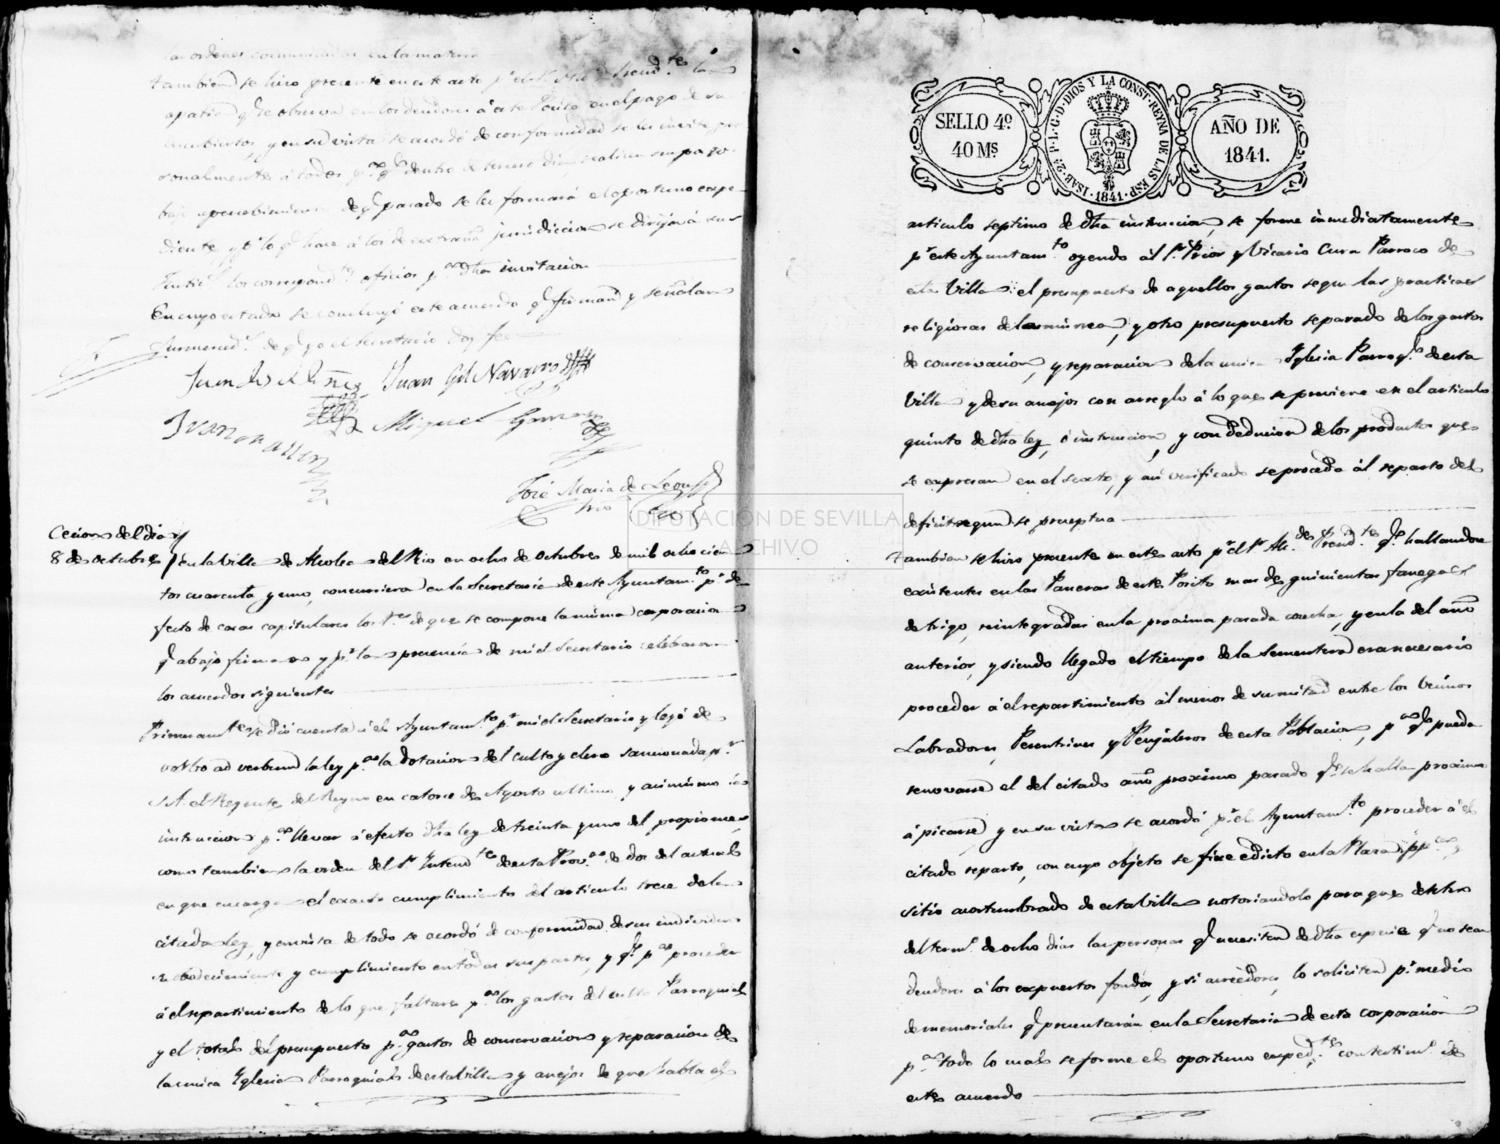 las ordenes comunicadas en la materia
tambien se hizo presente en este acto pr. el Sr. Alc. Presidte. la
apatia q. se observa en los deudores á este Posito en el pago de sus
descubiertos, y en su vista se acordó de conformidad se les invite per
sonalmente á todos pa. q. dentro de tercero dia realicen su pago
bajo apercebimiento de q. pasado se les formará el oportuno espe
diente, y pr. lo q. hace á los de estraña jurisdiccion se dirijan á sus
Justics. los correspondtes. oficios pa. dha invitacion
En cuyo estado se concluyó este acuerdo q. firman y señalan
sus mercedes. de q. yo el Secretario doy fee
Juan Gil Navarro
Miguel
José Maria de Leon
Srio
Cecion del dia
8 de octubre / en la Villa de Alcolea del Rio en ocho de octubre de mil ochocien
tos cuarenta y uno, concurrieron en la Secretaria de este Ayuntamto. pr. de
fecto de casas capitulares los Sres. de que se compone la misma corporacion
q. abajo firmaron y pr. la presencia de mi el Secretario celebraron
los acuerdos siguientes
Primeramte. se dió cuenta á el Ayuntamto. pr. mi el Secretario y leyó de
verbo ad verbum la ley pa. la dotacion del culto y clero sancionada pr.
S. A. el Regente del Reyno en catorce de Agosto ultimo y asimismo la
instruccion pa. llevar á efecto dha ley de treinta y uno del propio mes,
como tambien la orden del Sr. Intendte. de esta Prova. de dos del actual
en que encarga el exacto cumplimiento del articulo trece de la
citada Ley, y en vista de todo se acordó de conformidad de sus individuos
su obedecimiento y cumplimiento en todas sus partes, y q. pa. proceder
á el repartimiento de lo que faltare pa. los gastos del culto Parroquial
y el total del presupuesto pa. gastos de conservacion y reparacion de
la unica Yglesia Parroquial de esta Villa y anejos de que habla el
SELLO 4º
40 Ms
ISAB. 2ª P. L. G. D. DIOS Y LA CONST. REYNA DE LAS ESP.
1841
AÑO DE
1841.
articulo septimo de dha instruccion, se forme inmediatamente
pr. este Ayuntamto. oyendo al Sr. Prior y Vicario Cura Parroco de
esta Villa el presupuesto de aquellos gastos segun las practicas
religiosas de la misma, y otro presupuesto separado de los gastos
de conservacion, y reparacion de la unica Yglesia Parroql. de esta
Villa y de sus anejos con arreglo á lo que se previene en el articulo
quinto de dha ley, é instruccion, y con deducion de los productos que
se expresan en el sexto, y asi verificado se proceda al reparto del
deficit segun se preceptua
tambien se hizo presente en este acto pr. el Sr. Alc. Presidte. q. hallandose
existentes en las Paneras de este Posito mas de quinientas fanegas
de trigo, reintegradas en la proxima pasada cosecha, y en la del año
anterior, y siendo llegado el tiempo de la Sementera era necesario
proceder á el repartimiento al menos de su mitad entre los Vecinos
Labradores, Perentrines y Pegujaleros de esta Poblacion, pa. q. pueda
renovarse el del citado año proximo pasado q. se halla proximo
á picarse, y en su vista se acordó pr. el Ayuntamto. proceder á el
citado reparto, con cuyo objeto se fixe edicto en la Plaza ppca.
sitio acostumbrado de esta Villa notoriandolo para que dentro
del termo. de ocho dias las personas q. necesiten de dha especie q. no sean
deudores á los expuestos fondos, y si acreedores, lo soliciten pr. medio
de memoriales q. presentarán en la Secretaria de esta corporacion
pa. todo lo cual se forme el oportuno expedte. con testimo. de
este acuerdo
DIPUTACIÓN DE SEVILLA
ARCHIVO